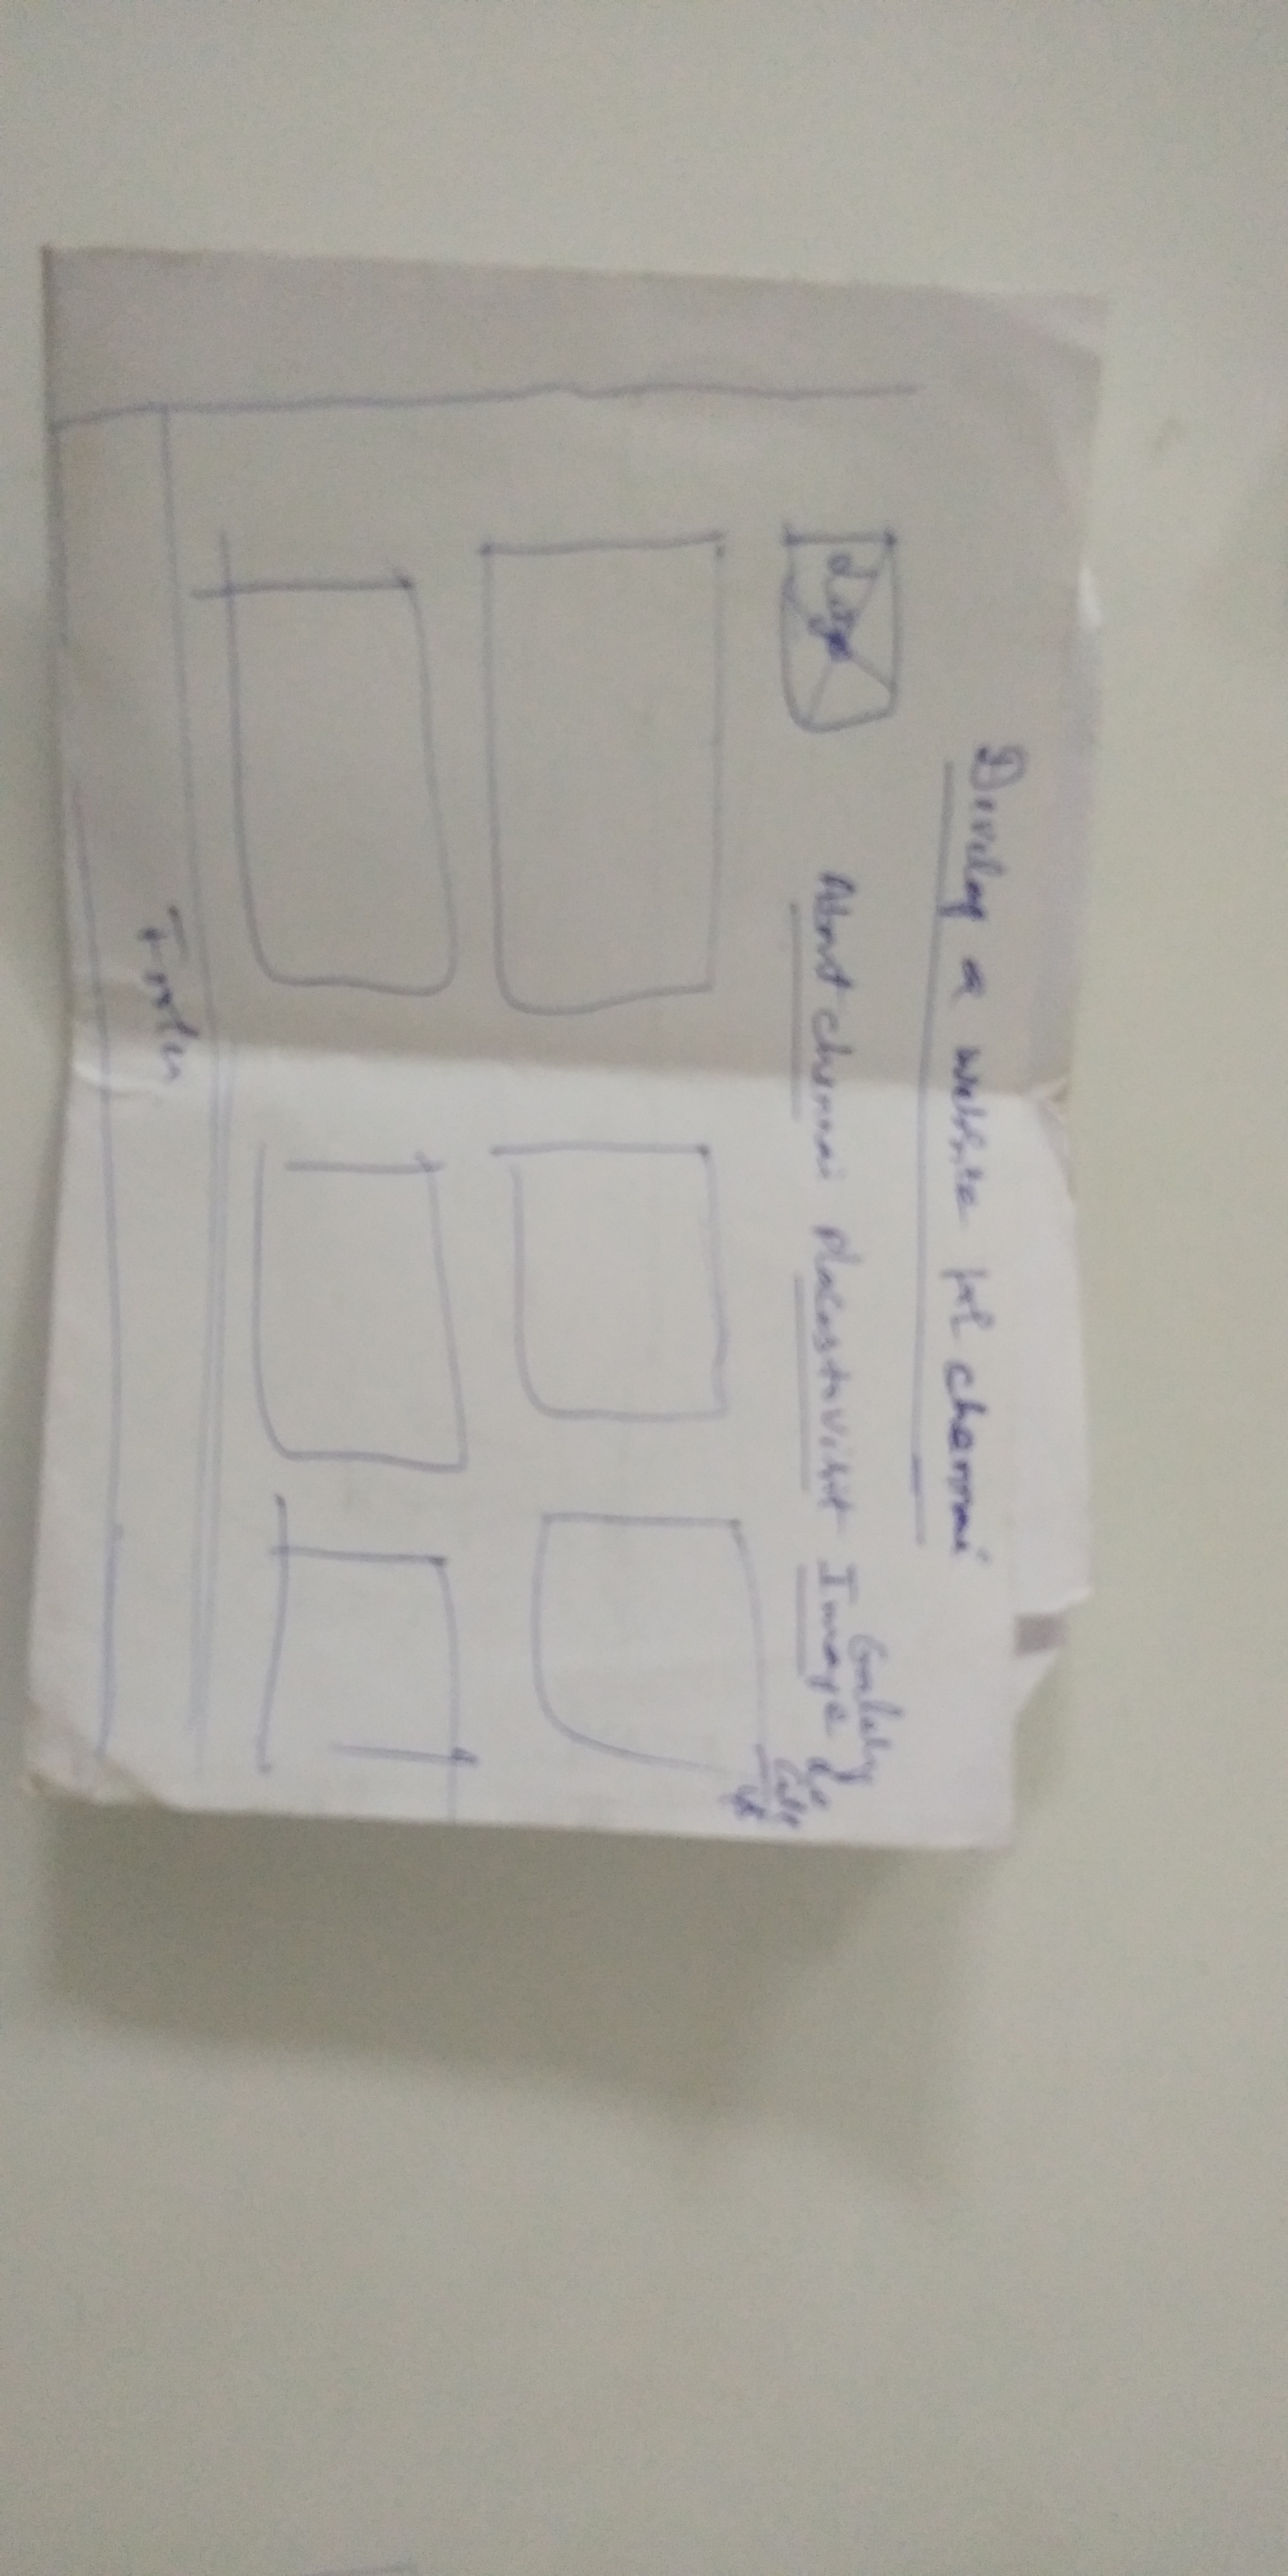 Develop a website for chennai
Logo
About chennai Places to Visit Image Gallery
Footer